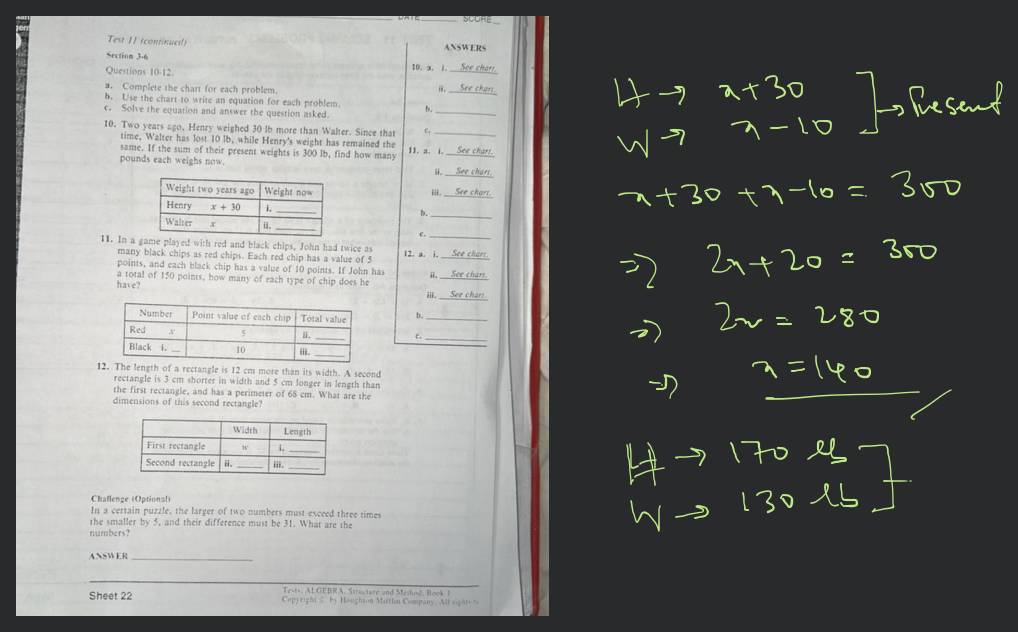 DATE SCORE
Test 11 (continued)
Section 3-6
Questions 10-12.
a. Complete the chart for each problem.
b. Use the chart to write an equation for each problem.
c. Solve the equation and answer the question asked.
10. Two years ago, Henry weighed 30 lb more than Walter. Since that
time, Walter has lost 10 lb, while Henry's weight has remained the
same. If the sum of their present weights is 300 lb, find how many
pounds each weighs now.
Weight two years ago Weight now
Henry x + 30 i.
Walter x ii.
11. In a game played with red and black chips, John had twice as
many black chips as red chips. Each red chip has a value of 5
points, and each black chip has a value of 10 points. If John has
a total of 150 points, how many of each type of chip does he
have?
Number Point value of each chip Total value
Red x 5 ii.
Black i. 10 iii.
12. The length of a rectangle is 12 cm more than its width. A second
rectangle is 3 cm shorter in width and 5 cm longer in length than
the first rectangle, and has a perimeter of 68 cm. What are the
dimensions of this second rectangle?
Width Length
First rectangle w i.
Second rectangle ii. iii.
Challenge (Optional)
In a certain puzzle, the larger of two numbers must exceed three times
the smaller by 5, and their difference must be 31. What are the
numbers?
ANSWER
Sheet 22
Tests, ALGEBRA, Structure and Method, Book 1
Copyright © by Houghton Mifflin Company. All rights
ANSWERS
10. a. i. See chart.
ii. See chart.
b.
c.
11. a. i. See chart.
ii. See chart.
iii. See chart.
b.
c.
12. a. i. See chart.
ii. See chart.
iii. See chart.
b.
c.
H → x+30
W → x-10 → Present
x+30 +x-10 = 300
⇒ 2x+20 = 300
⇒ 2x = 280
⇒ x=140
H → 170 lb
W → 130 lb